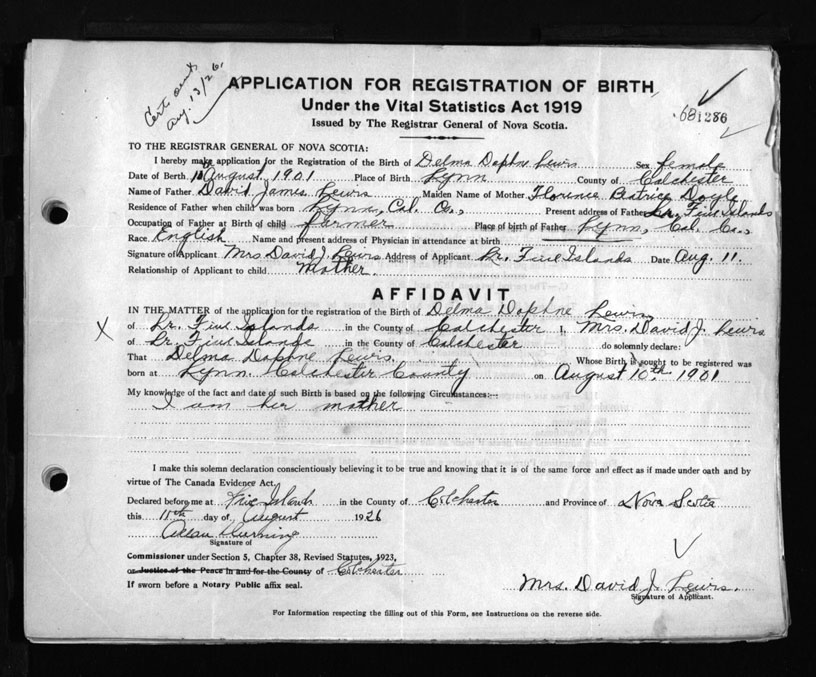 Cert sent
Aug. 13/26.
APPLICATION FOR REGISTRATION OF BIRTH
Under the Vital Statistics Act 1919
Issued by The Registrar General of Nova Scotia.
681286
TO THE REGISTRAR GENERAL OF NOVA SCOTIA:
I hereby make application for the Registration of the Birth of Delma Daphne Lewis Sex female
Date of Birth 10 August, 1901 Place of Birth Lynn County of Colchester
Name of Father David James Lewis Maiden Name of Mother Florence Beatrice Doyle
Residence of Father when child was born Lynn, Col. Co., Present address of Father Lr. Five Islands
Occupation of Father at Birth of child farmer Place of birth of Father Lynn, Col. Co.,
Race English Name and present address of Physician in attendance at birth
Signature of Applicant Mrs David J. Lewis Address of Applicant Lr. Five Islands Date Aug. 11.
Relationship of Applicant to child mother
AFFIDAVIT
IN THE MATTER of the application for the registration of the Birth of Delma Daphne Lewis
X of Lr. Five Islands in the County of Colchester I, Mrs. David J. Lewis
of Lr. Five Islands in the County of Colchester do solemnly declare:
That Delma Daphne Lewis Whose Birth is sought to be registered was
born at Lynn, Colchester County on August 10th 1901
My knowledge of the fact and date of such Birth is based on the following Circumstances:—
I am her mother
I make this solemn declaration conscientiously believing it to be true and knowing that it is of the same force and effect as if made under oath and by
virtue of The Canada Evidence Act.
Declared before me at Five Islands in the County of Colchester and Province of Nova Scotia
this 11th day of August 1926
Signature of
Commissioner under Section 5, Chapter 38, Revised Statutes, 1923,
or Justice of the Peace in and for the County of Colchester
If sworn before a Notary Public affix seal.
Mrs. David J. Lewis.
Signature of Applicant.
For Information respecting the filling out of this Form, see Instructions on the reverse side.